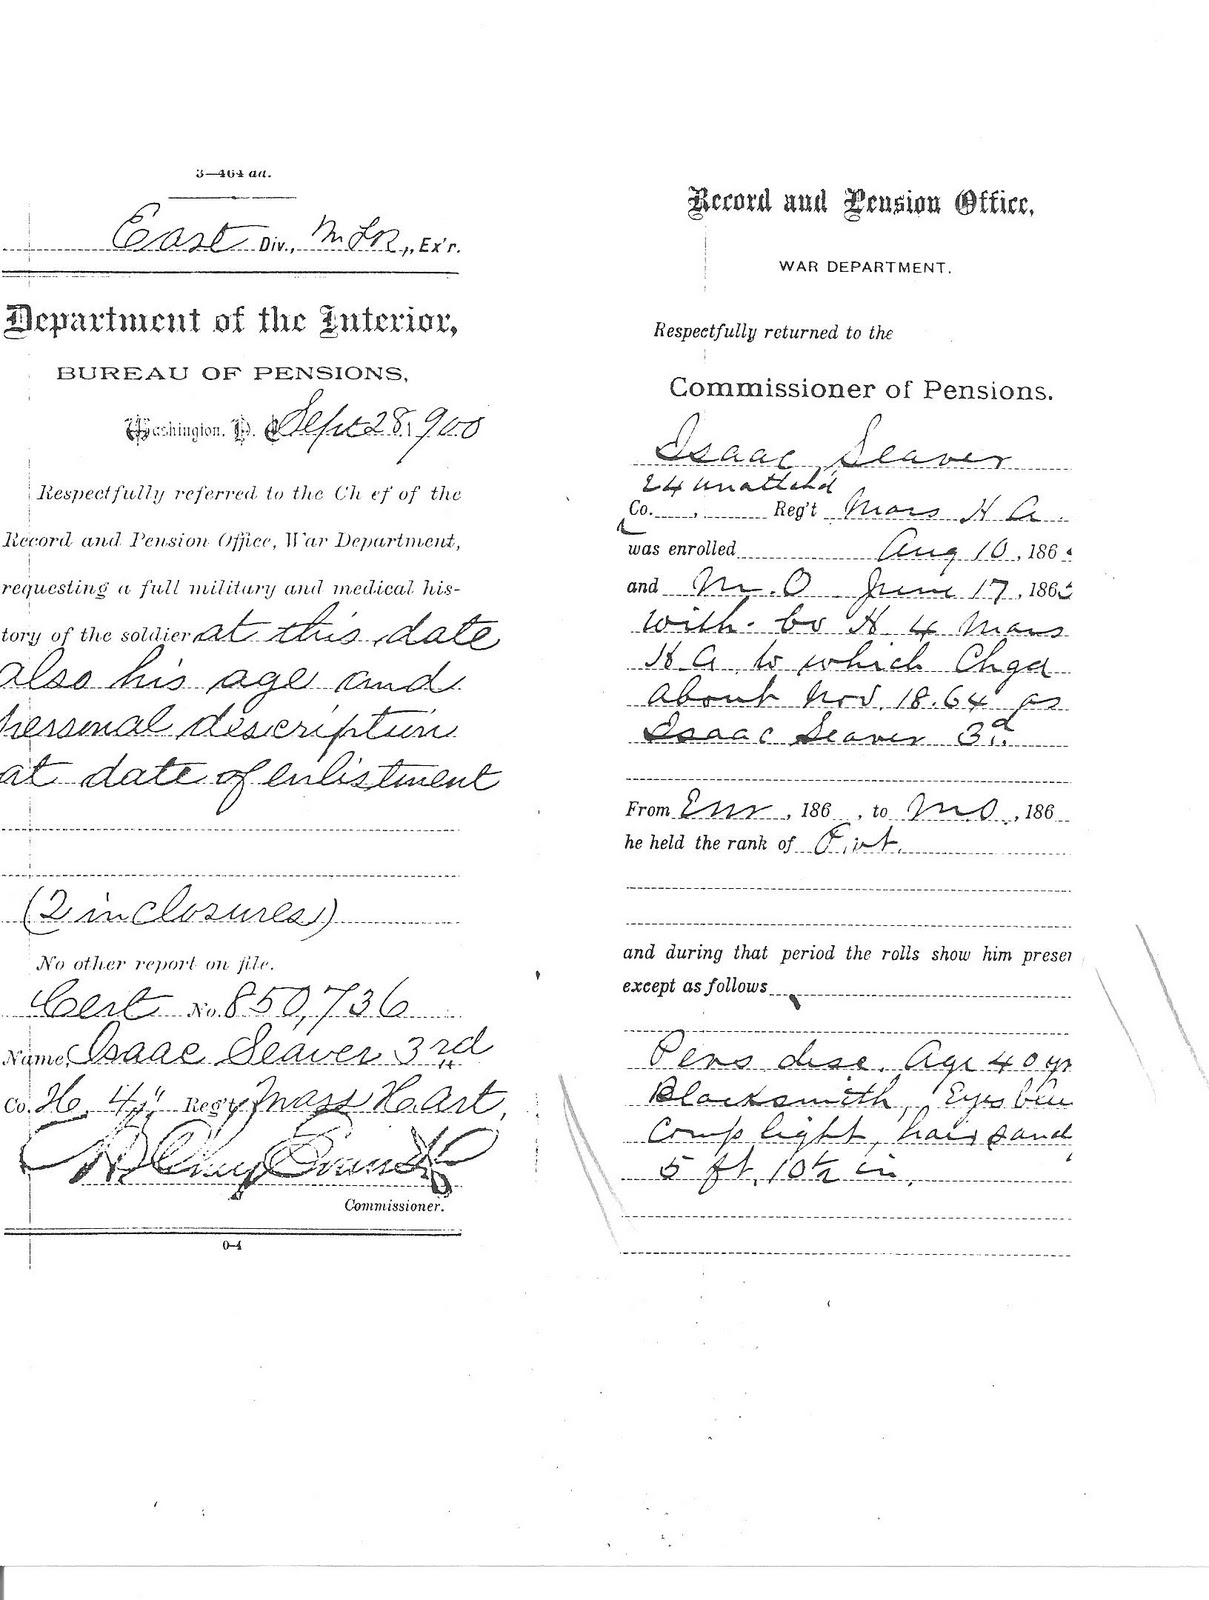 3—464 aa.
East Div., Ex'r.
Department of the Interior,
BUREAU OF PENSIONS,
Washington, D. C. Sept 28, 900
Respectfully referred to the Ch ef of the
Record and Pension Office, War Department,
requesting a full military and medical his-
tory of the soldier at this date
also his age and
personal description
at date of enlistment
(2 inclosures)
No other report on file.
Cert No. 850,736
Name, Isaac Seaver 3rd
Co. H, 4" Reg't Mass H. Art,
Commissioner.
0-4
Record and Pension Office,
WAR DEPARTMENT.
Respectfully returned to the
Commissioner of Pensions.
Isaac Seaver
24 unattchd
Co. , Reg't Mass H A.
was enrolled Aug 10, 186
and M.O June 17, 186
with Co H 4 Mass
H A to which Chgd
about Nov. 18.64 as
Isaac Seaver 3d.
From Enr, 186 , to M.O., 186
he held the rank of Pvt.
and during that period the rolls show him presen
except as follows
Pers desc. Age 40 yr
Blacksmith, Eyes blue
Comp light, hair sand
5 ft. 10½ in.